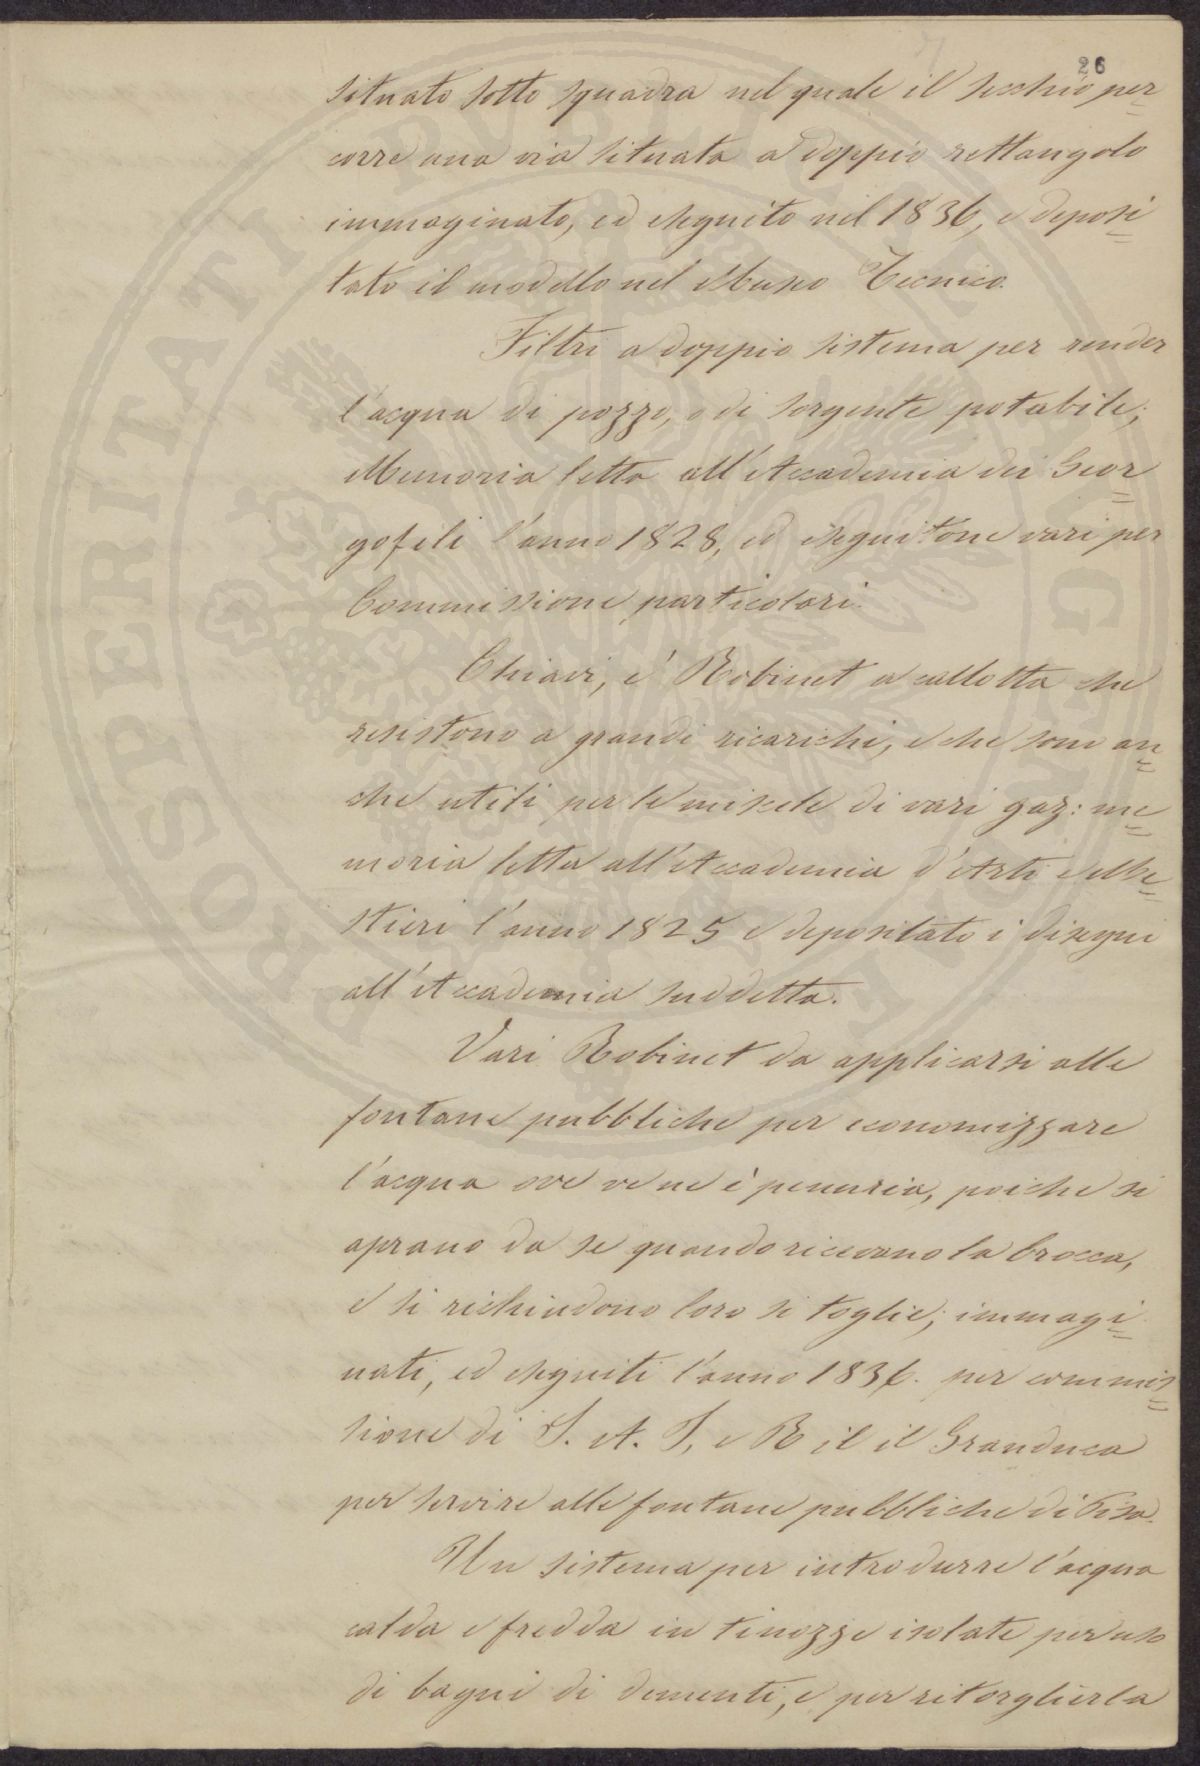 26
situato sotto squadra nel quale il secchio per=
corre una via situata a doppio rettangolo
immaginato, ed eseguito nel 1836, e deposi=
tato il modello nel Museo Tecnico.
Filtri a doppio sistema per render
l'acqua di pozzo, o di sorgente potabile;
Memoria letta all'Accademia dei Geor=
gofili l'anno 1828, ed eseguitone vari per
Commissione particolari.
Chiavi, e' Robinet a callotta che
resistono a grandi ricarichi, e che sono an=
che utili per le miscele di vari gaz: me=
moria letta all'Accademia d'Arti e Me=
stieri l'anno 1825 e depositato i disegni
all'Accademia suddetta.
Vari Robinet da applicarsi alle
fontane pubbliche per economizzare
l'acqua ove ve ne è penuria, poiche si
aprano da se quando ricevano la brocca,
e si richiudono loro si toglie; immagi=
nati, ed eseguiti l'anno 1836. per commis=
sione di S. A. I. e R il il Granduca
per servire alle fontane pubbliche di Pisa.
Un sistema per introdurre l'acqua
calda e fredda in tinozze isolate per uso
di bagni di dementi, e per ritorglierla
PROSPERITATI PVBLICAE AVGENDAE